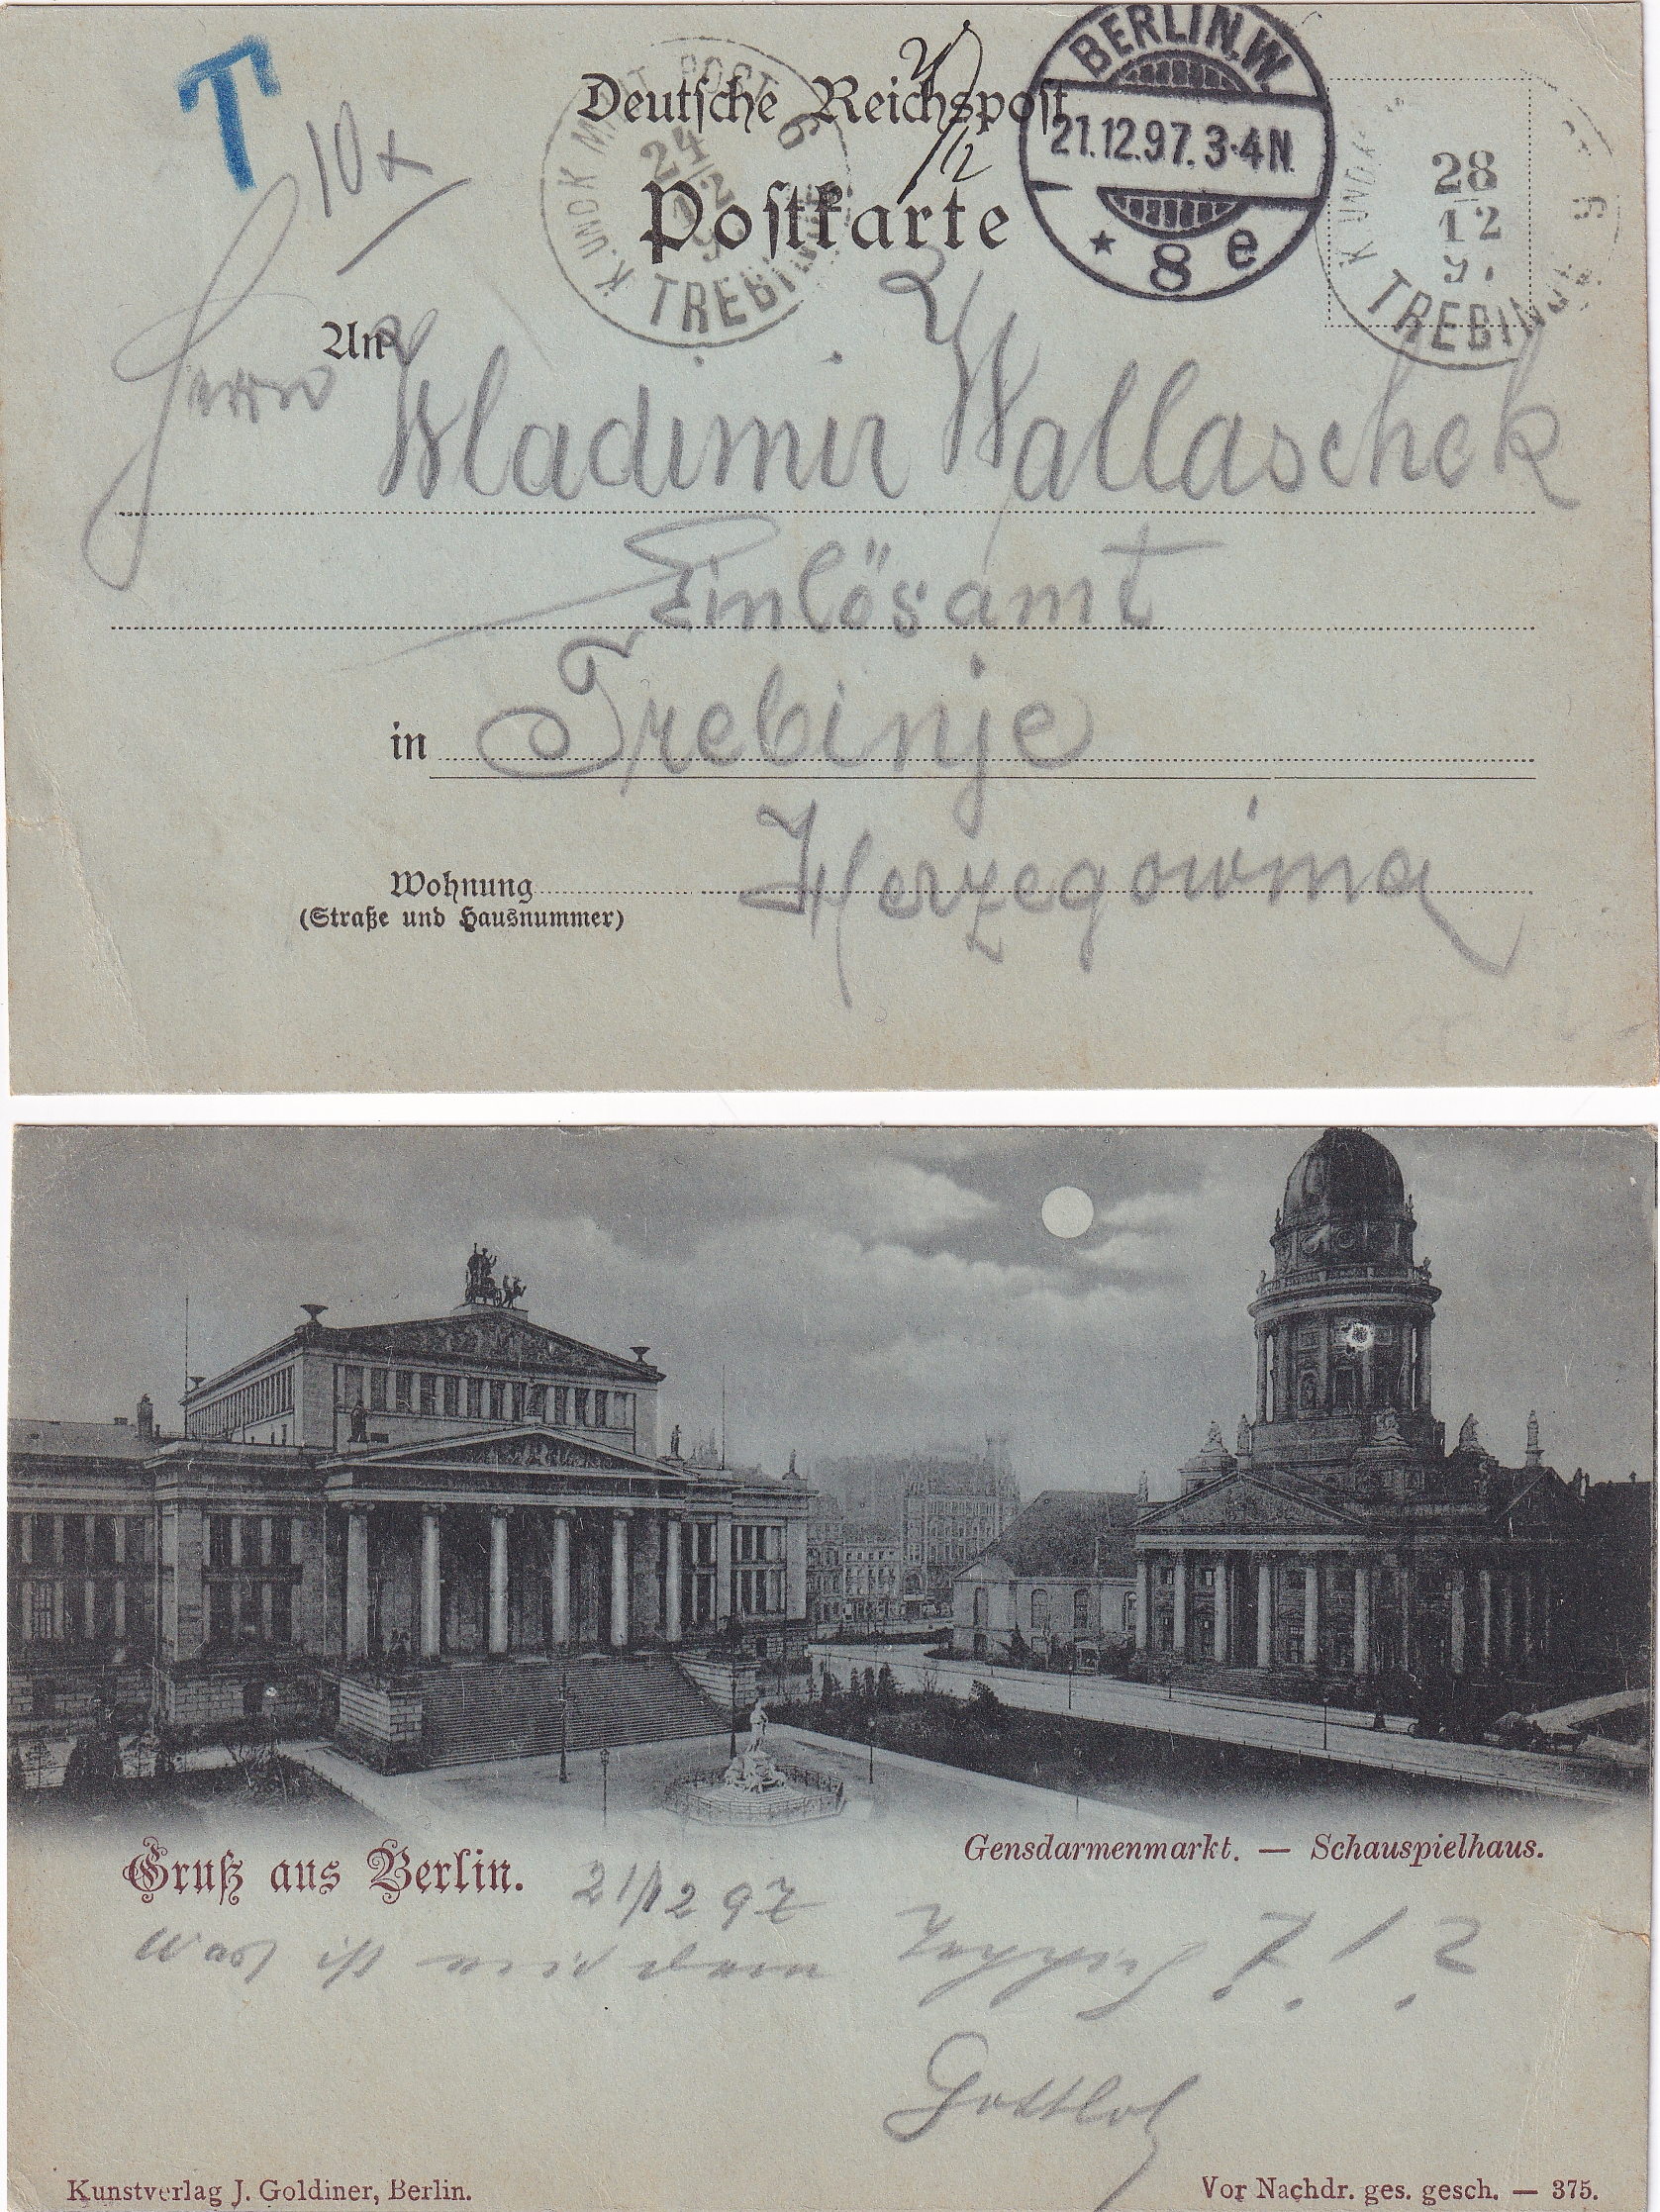 T
10x
Deutsche Reichspost
Postkarte
BERLIN.W.
21.12.97.3-4N.
* 8 e
K. UND K. MILIT. POST
24
12
9
TREBINJE
6
K. UND K.
28
12
97
TREBINJE
An
Herrn Wladimir Wallaschek
Einlösamt
in Trebinje
Herzegowina
Wohnung
(Straße und Hausnummer)
Gensdarmenmarkt. — Schauspielhaus.
Gruß aus Berlin. 21/12 97
Was ist mit dem Teppich ?!?
Gottlob
Kunstverlag J. Goldiner, Berlin. Vor Nachdr. ges. gesch. — 375.